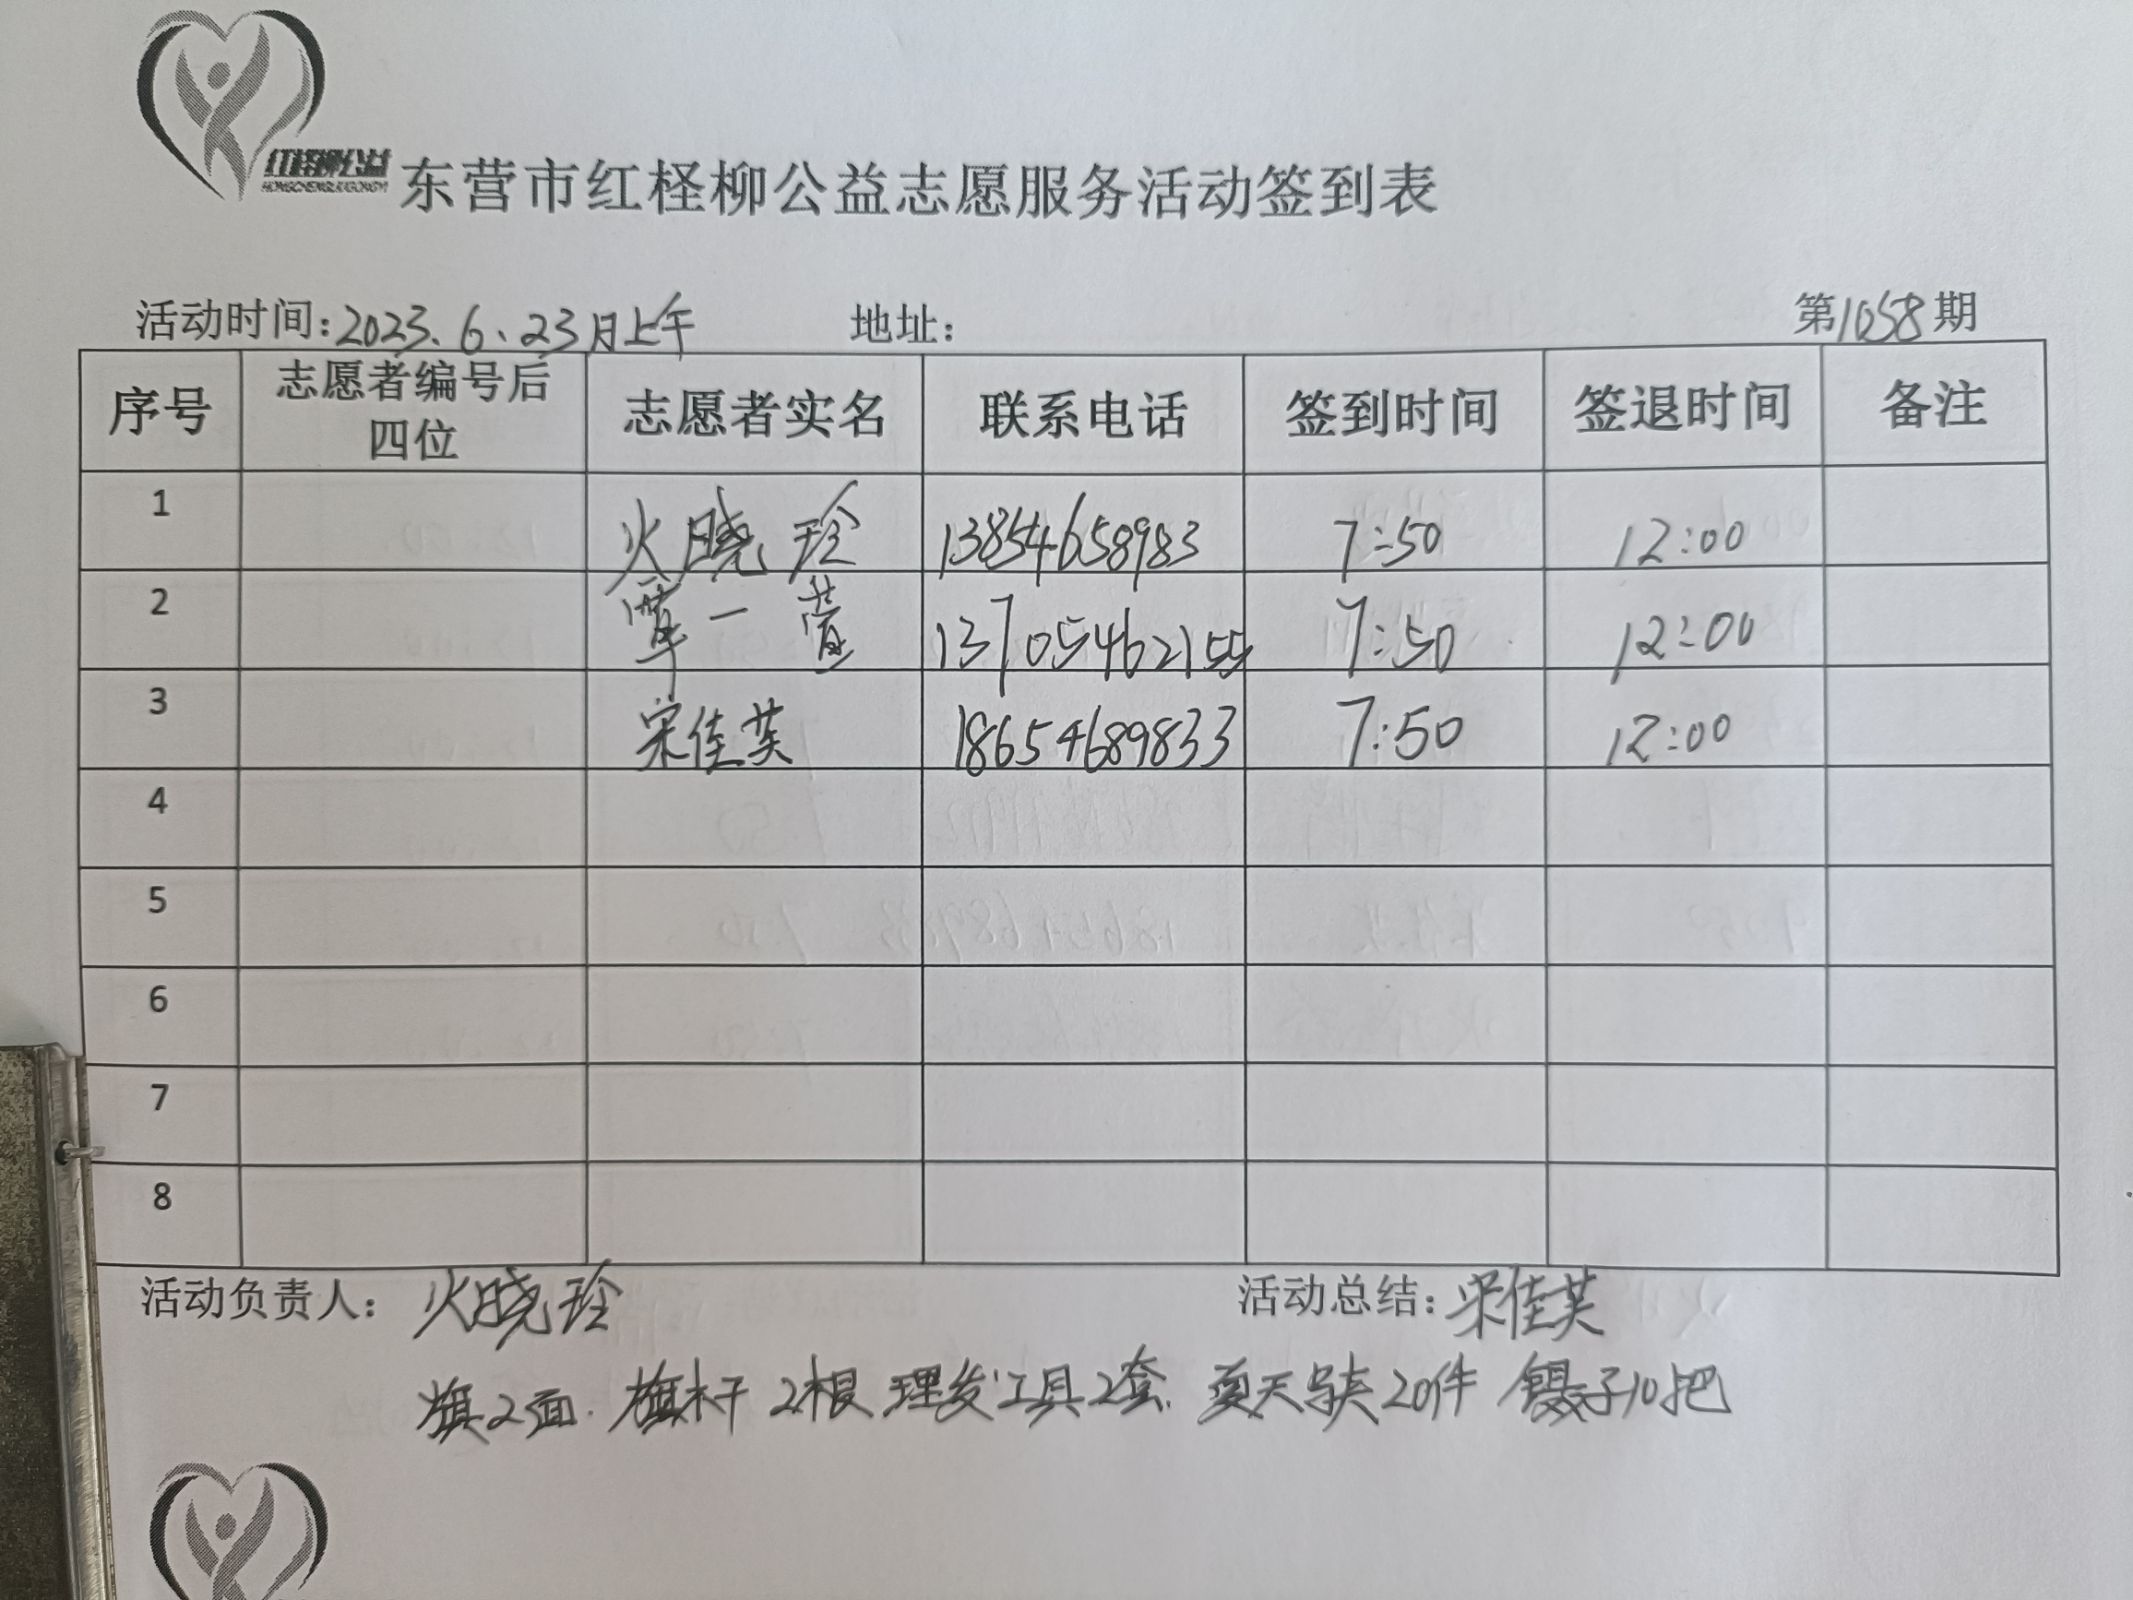 红柽柳公益
HONGCHENGLIUGONGYI
东营市红柽柳公益志愿服务活动签到表
活动时间：2023.6.23日上午 地址： 第1058期
序号 志愿者编号后四位 志愿者实名 联系电话 签到时间 签退时间 备注
1 火晓玲 13854658983 7:50 12:00
2 覃一萱 13705462155 7:50 12:00
3 宋佳芙 18654689833 7:50 12:00
4
5
6
7
8
活动负责人：火晓玲 活动总结：宋佳芙
旗2面. 旗杆2根 理发工具2套. 夏天马夹20件 镊子10把